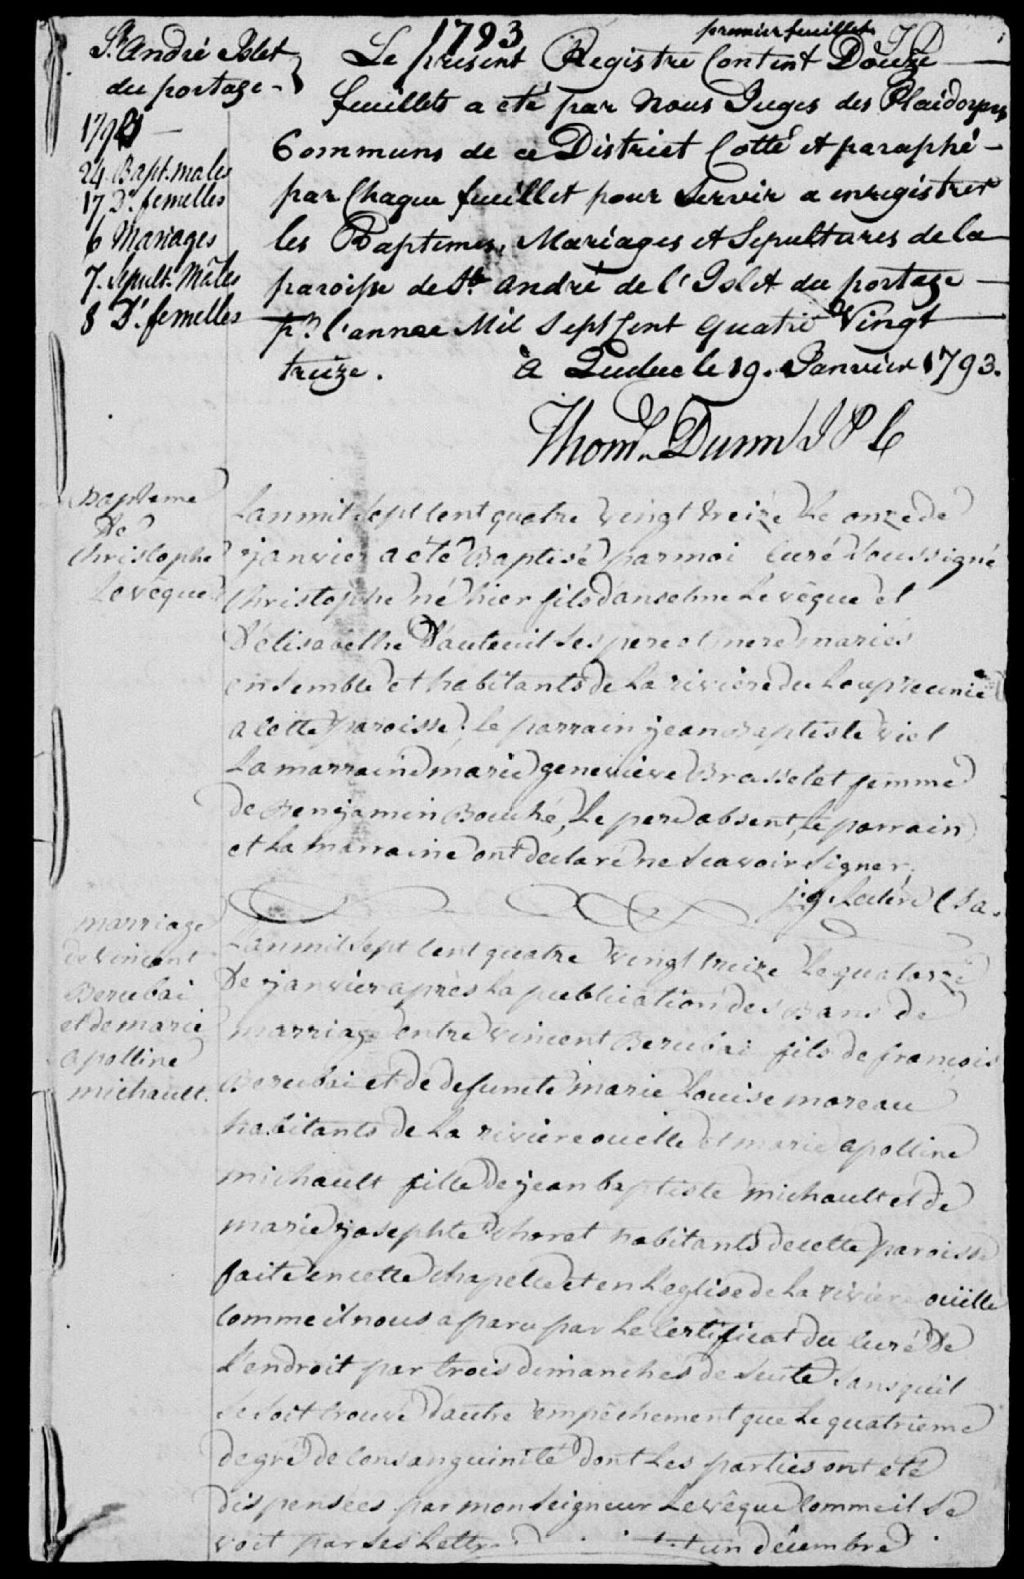 1793
premier feuillet
St. André Islet
du portage -
1793
24 Bapt. males
17 Do. femelles
6 Mariages
7. Sepult. Mâles
8 Do. femelles
Le present Registre Content Douze
feuillets a eté par Nous Juges des Plaidoyers
Communs de ce District Cotté et paraphé -
par Chaque feuillet pour Servir a enregistrer
les Baptemes, Mariages et Sepultures de la
paroisse de St. André de l'Islet du portage -
pr. l'annee Mil Sept Cent Quatre Vingt
treize. à Quebec le 19. Janvier 1793.
Thoms. Dunn J P C
Bapteme
de
christophe
Levêque
L'an mil sept cent quatre vingt treize Le onze de
janvier a eté Baptisé par moi curé soussigné
christophe né hier fils d'anselme Levêque et
d'élisabethe d'auteuil ses pere et mere mariés
ensemble et habitants de La riviere du Loup reunie
a cette paroisse; Le parrain jean baptiste viel
La marraine marie genevieve Brasselet femme
de Benjamin Bouché, Le pere absent, Le parrain
et La marraine ont declaré ne scavoir signer,
marriage
de vincent
Berubai
et de marie
apolline
michault.
L'an mil sept cent quatre vingt treize Le quatorze
De janvier après La publication des Bans de
marriage entre vincent Berubai fils de francois
Berubai et de defuncte marie Louise moreau
habitants de La riviere ouelle et marie apolline
michault fille de jean baptiste michault et de
marie josephte choret habitants de cette paroisse
faite en cette chapelle et en L'eglise de La riviere ouëlle
comme il nous a paru par Le certificat du curé de
L'endroit par trois dimanches de suite sans qu'il
se soit trouvé d'autre empêchement que Le quatrieme
degré de consanguinité dont Les parties ont eté
dispensées par monseigneur Levêque comme il se
voit par ses Lettres un décembre